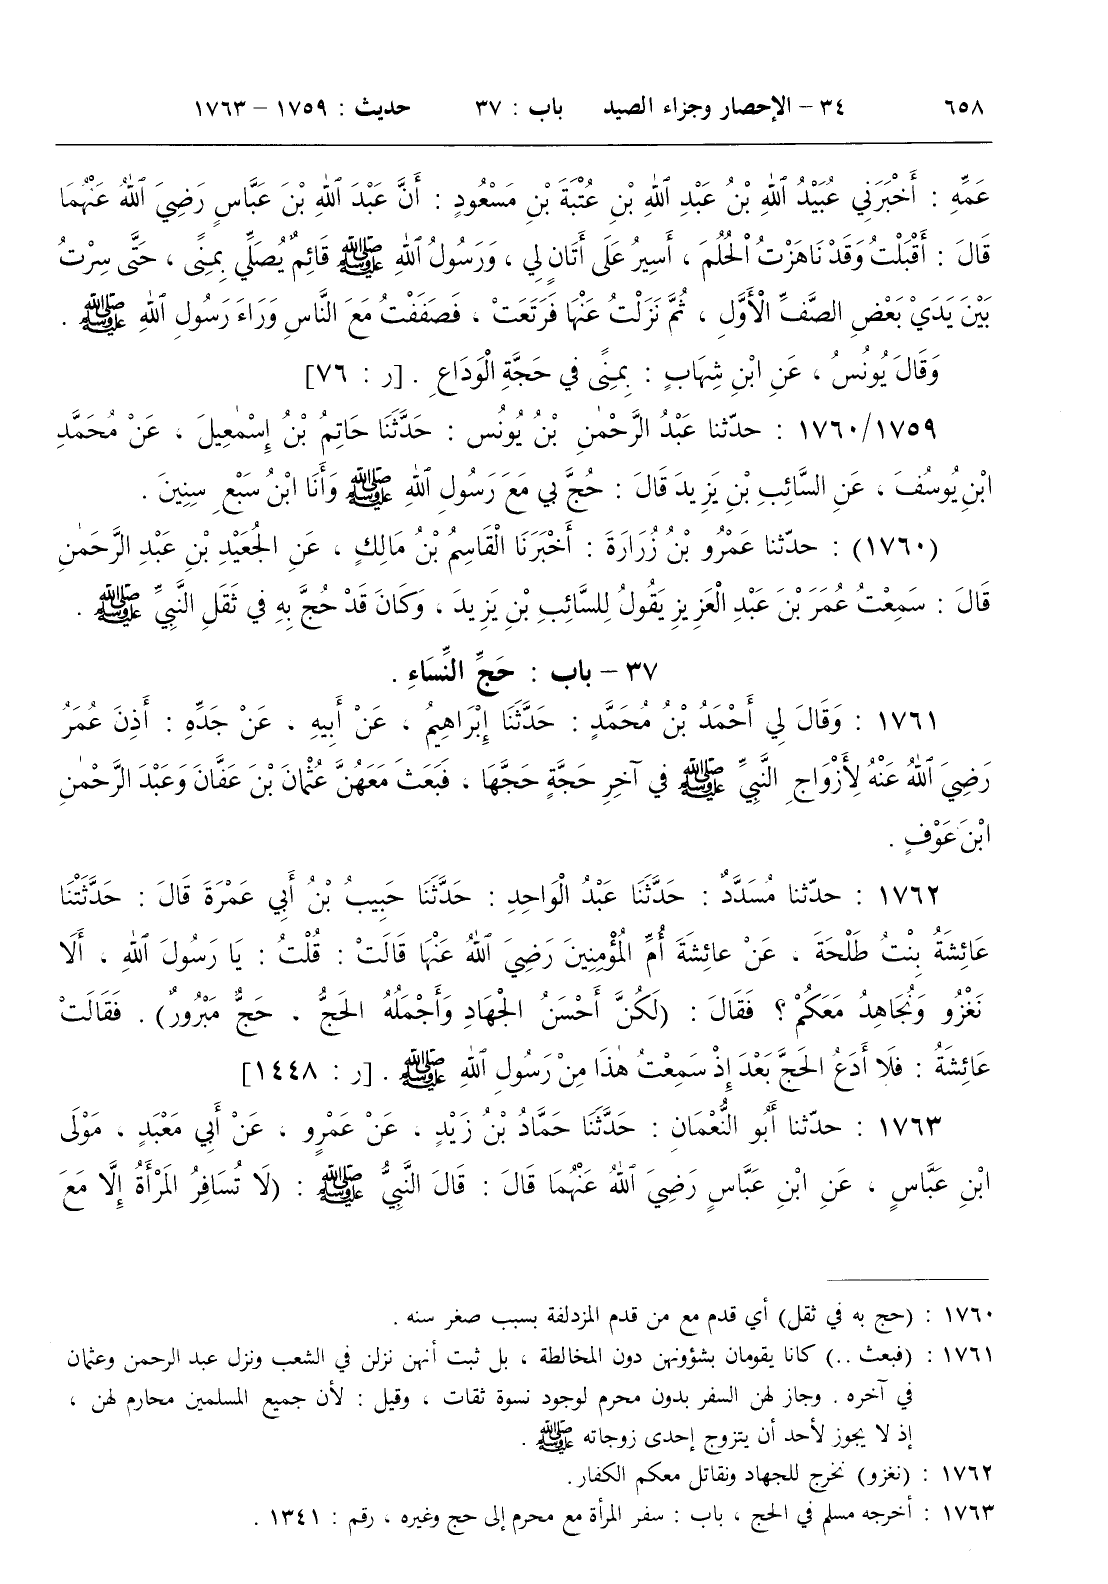 ٦٥٨ ٣٤ – الإحصار وجزاء الصيد باب : ٣٧ حديث : ١٧٥٩ – ١٧٦٣
عَمِّهِ : أَخْبَرَنِي عُبَيْدُ اللهِ بْنُ عَبْدِ اللهِ بْنِ عُتْبَةَ بْنِ مَسْعُودٍ : أَنَّ عَبْدَ اللهِ بْنَ عَبَّاسٍ رَضِيَ اللهُ عَنْهُمَا
قَالَ : أَقْبَلْتُ وَقَدْ نَاهَزْتُ الْحُلُمَ ، أَسِيرُ عَلَى أَتَانٍ لِي ، وَرَسُولُ اللهِ ﷺ قَائِمٌ يُصَلِّي بِمِنًى ، حَتَّى سِرْتُ
بَيْنَ يَدَيْ بَعْضِ الصَّفِّ الْأَوَّلِ ، ثُمَّ نَزَلْتُ عَنْهَا فَرَتَعَتْ ، فَصَفَفْتُ مَعَ النَّاسِ وَرَاءَ رَسُولِ اللهِ ﷺ .
وَقَالَ يُونُسُ ، عَنِ ابْنِ شِهَابٍ : بِمِنًى فِي حَجَّةِ الْوَدَاعِ . [ر : ٧٦]
١٧٦٠/١٧٥٩ : حدّثنا عَبْدُ الرَّحْمٰنِ بْنُ يُونُسَ : حَدَّثَنَا حَاتِمُ بْنُ إِسْمٰعِيلَ ، عَنْ مُحَمَّدِ
ابْنِ يُوسُفَ ، عَنِ السَّائِبِ بْنِ يَزِيدَ قَالَ : حُجَّ بِي مَعَ رَسُولِ اللهِ ﷺ وَأَنَا ابْنُ سَبْعِ سِنِينَ .
(١٧٦٠) : حدّثنا عَمْرُو بْنُ زُرَارَةَ : أَخْبَرَنَا الْقَاسِمُ بْنُ مَالِكٍ ، عَنِ الْجُعَيْدِ بْنِ عَبْدِ الرَّحْمٰنِ
قَالَ : سَمِعْتُ عُمَرَ بْنَ عَبْدِ الْعَزِيزِ يَقُولُ لِلسَّائِبِ بْنِ يَزِيدَ ، وَكَانَ قَدْ حُجَّ بِهِ فِي ثَقَلِ النَّبِيِّ ﷺ .
٣٧ – باب : حَجِّ النِّسَاءِ .
١٧٦١ : وَقَالَ لِي أَحْمَدُ بْنُ مُحَمَّدٍ : حَدَّثَنَا إِبْرَاهِيمُ ، عَنْ أَبِيهِ ، عَنْ جَدِّهِ : أَذِنَ عُمَرُ
رَضِيَ اللهُ عَنْهُ لِأَزْوَاجِ النَّبِيِّ ﷺ فِي آخِرِ حَجَّةٍ حَجَّهَا ، فَبَعَثَ مَعَهُنَّ عُثْمَانَ بْنَ عَفَّانَ وَعَبْدَ الرَّحْمٰنِ
ابْنَ عَوْفٍ .
١٧٦٢ : حدّثنا مُسَدَّدٌ : حَدَّثَنَا عَبْدُ الْوَاحِدِ : حَدَّثَنَا حَبِيبُ بْنُ أَبِي عَمْرَةَ قَالَ : حَدَّثَتْنَا
عَائِشَةُ بِنْتُ طَلْحَةَ ، عَنْ عائِشَةَ أُمِّ الْمُؤْمِنِينَ رَضِيَ اللهُ عَنْهَا قَالَتْ : قُلْتُ : يَا رَسُولَ اللهِ ، أَلَا
نَغْزُو وَنُجَاهِدُ مَعَكُمْ ؟ فَقَالَ : (لَكُنَّ أَحْسَنُ الْجِهَادِ وَأَجْمَلُهُ الحَجُّ ، حَجٌّ مَبْرُورٌ) . فَقَالَتْ
عَائِشَةُ : فَلَا أَدَعُ الحَجَّ بَعْدَ إِذْ سَمِعْتُ هٰذَا مِنْ رَسُولِ اللهِ ﷺ . [ر : ١٤٤٨]
١٧٦٣ : حدّثنا أَبُو النُّعْمَانِ : حَدَّثَنَا حَمَّادُ بْنُ زَيْدٍ ، عَنْ عَمْرٍو ، عَنْ أَبِي مَعْبَدٍ ، مَوْلَى
ابْنِ عَبَّاسٍ ، عَنِ ابْنِ عَبَّاسٍ رَضِيَ اللهُ عَنْهُمَا قَالَ : قَالَ النَّبِيُّ ﷺ : (لَا تُسَافِرُ المَرْأَةُ إِلَّا مَعَ
١٧٦٠ : (حج به في ثقل) أي قدم مع من قدم المزدلفة بسبب صغر سنه .
١٧٦١ : (فبعث ..) كانا يقومان بشؤونهن دون المخالطة ، بل ثبت أنهن نزلن في الشعب ونزل عبد الرحمن وعثمان
في آخره . وجاز لهن السفر بدون محرم لوجود نسوة ثقات ، وقيل : لأن جميع المسلمين محارم لهن ،
إذ لا يجوز لأحد أن يتزوج إحدى زوجاته ﷺ .
١٧٦٢ : (نغزو) نخرج للجهاد ونقاتل معكم الكفار.
١٧٦٣ : أخرجه مسلم في الحج ، باب : سفر المرأة مع محرم إلى حج وغيره ، رقم : ١٣٤١ .